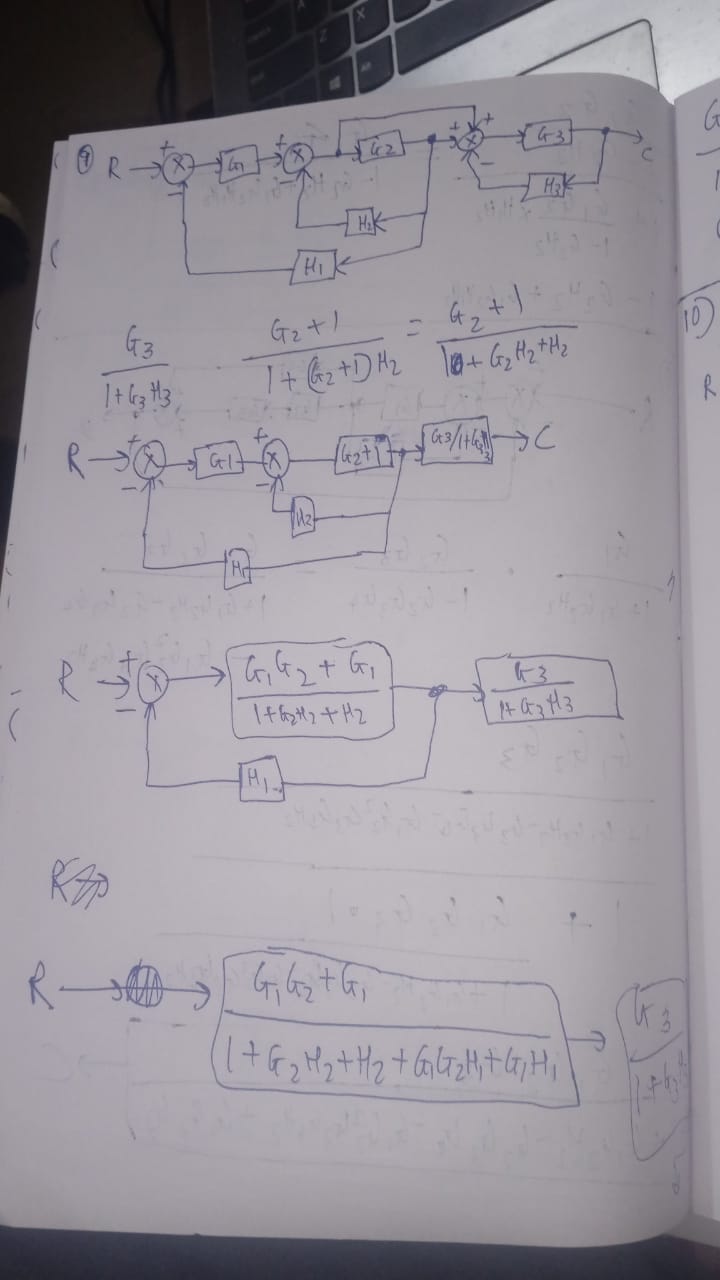 9 R + X G1 + X G2 + X + G3 C
- - -
H3
H2
H1
G3 / 1+G3H3 G2+1 / 1+(G2+1)H2 = G2+1 / 1+G2H2+H2
10)
R
R + X G1 + X G2+1 G3/1+G3H3 C
- -
H2
H1
R + X G1G2+G1 / 1+G2H2+H2 G3 / 1+G3H3
-
H1
R
R G1G2+G1 / 1+G2H2+H2+G1G2H1+G1H1 G3 / 1+G3H